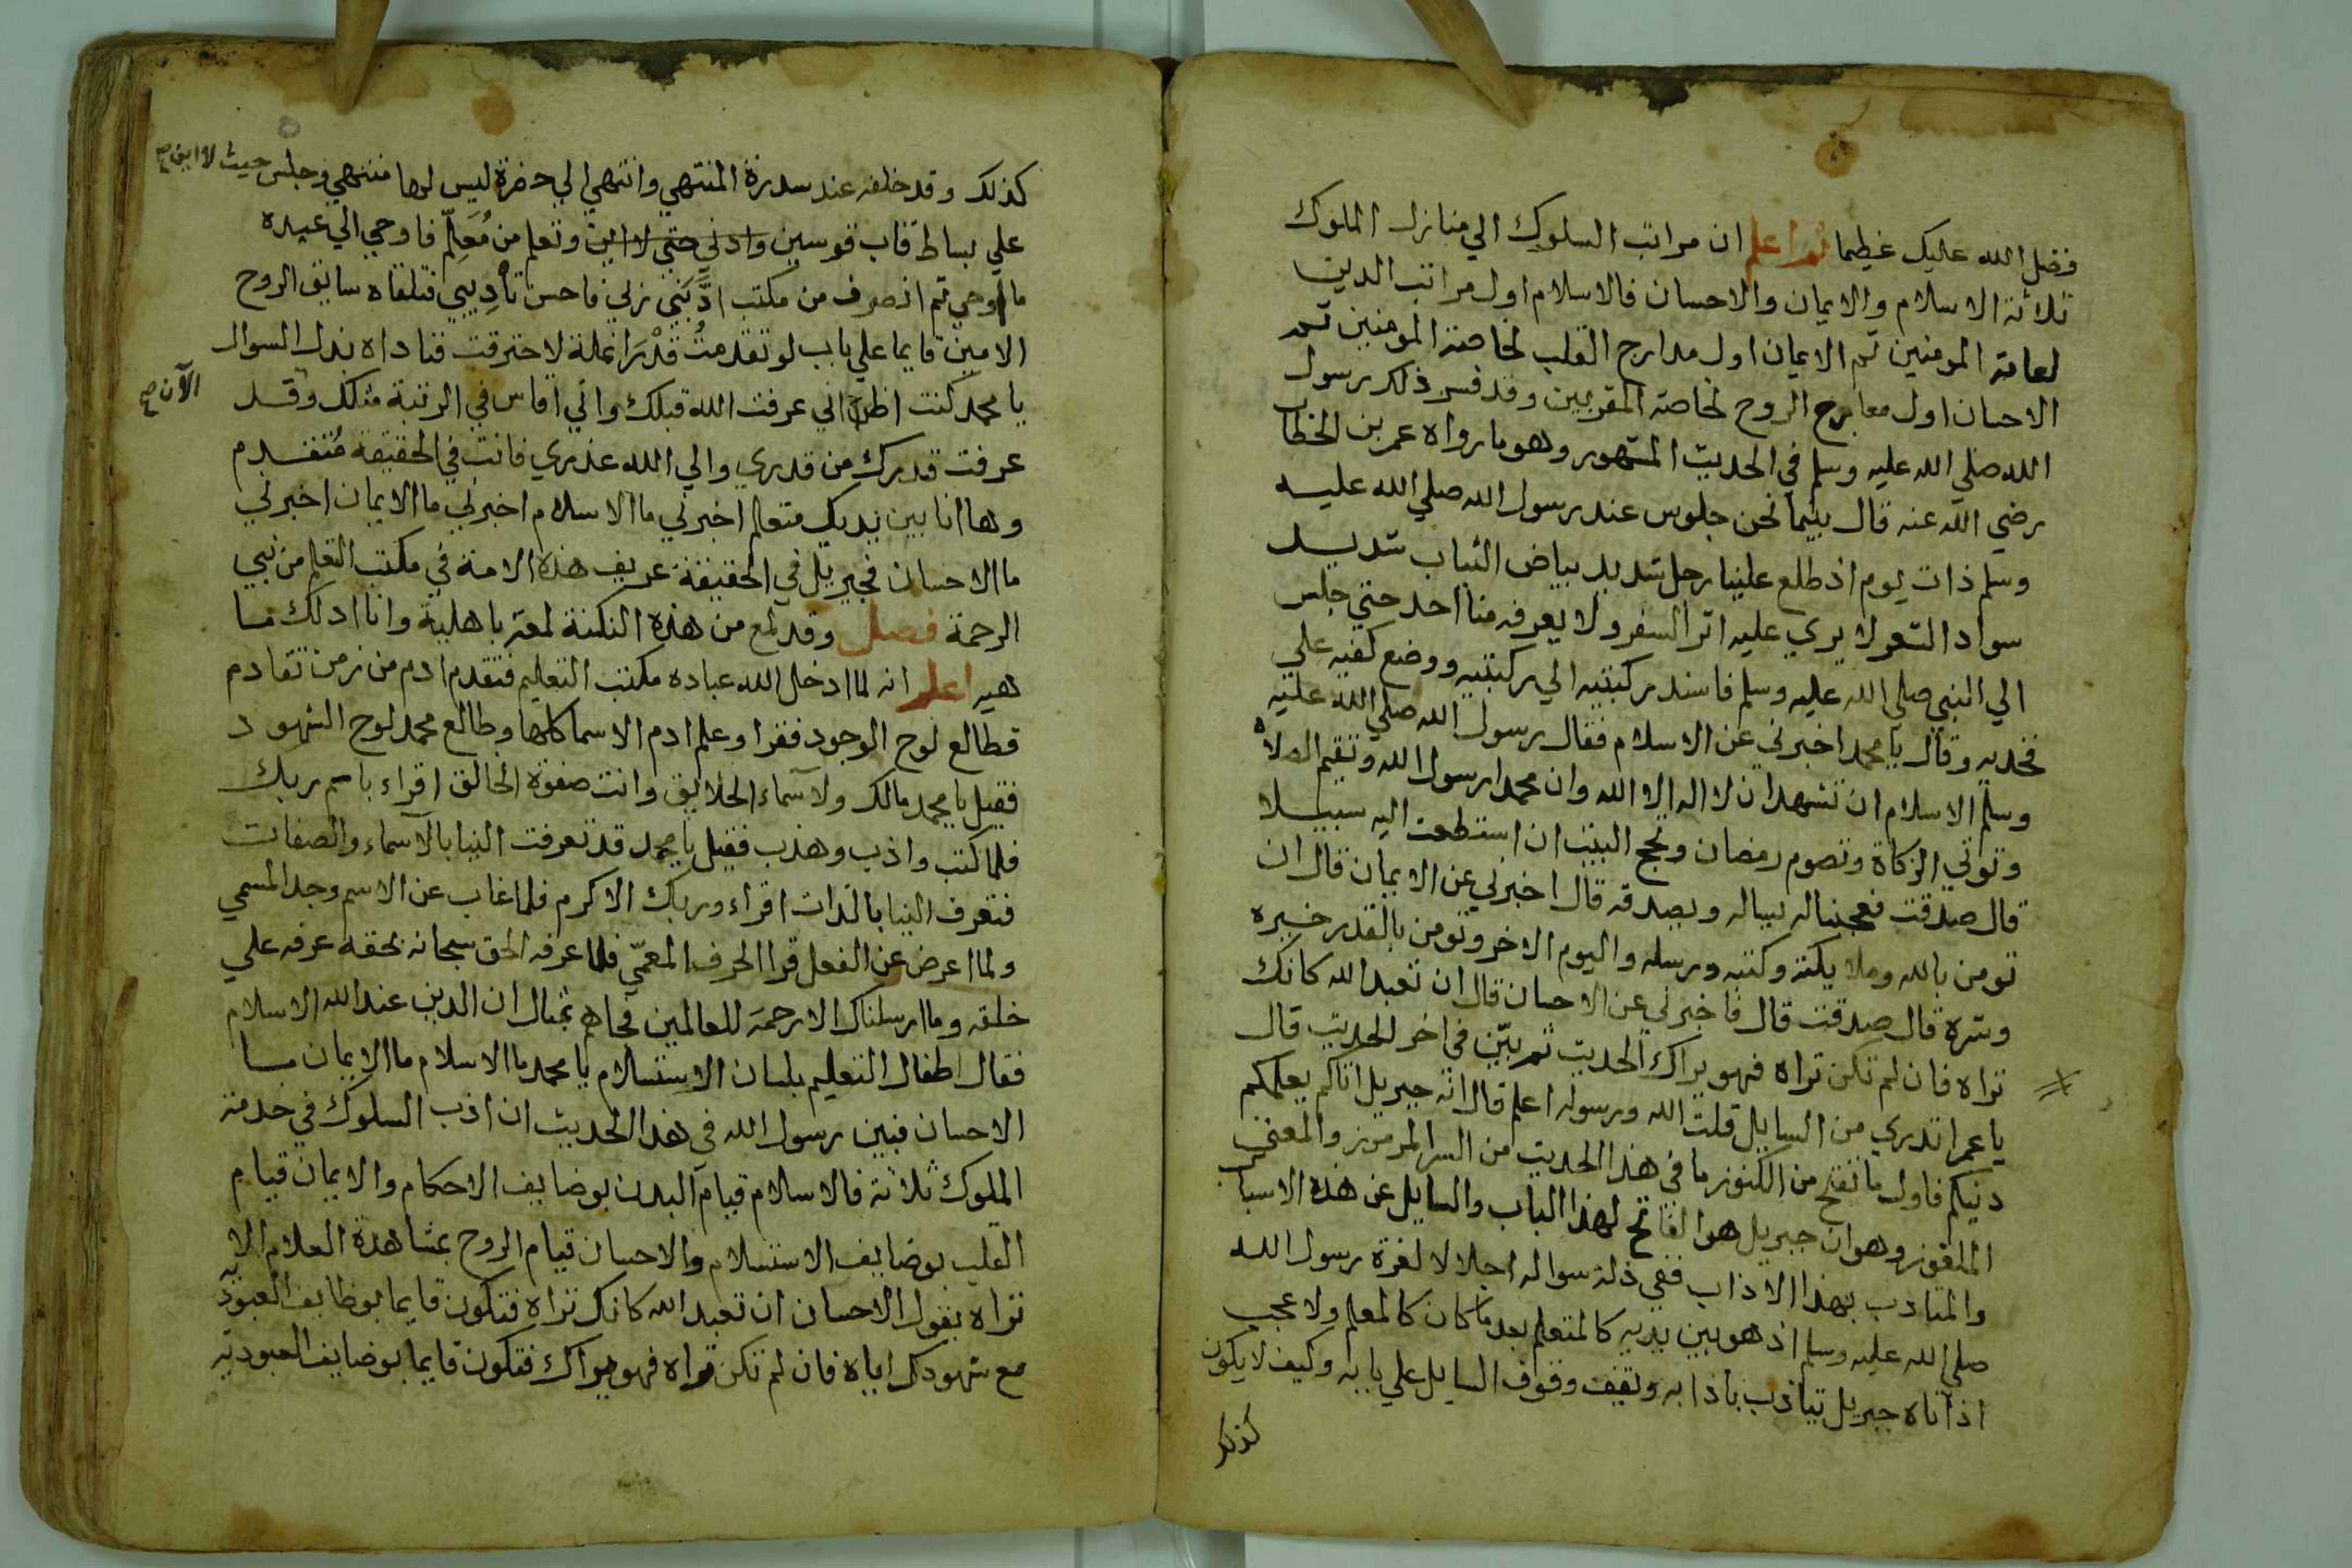 فضل الله عليك عظيما ثم اعلم ان مراتب السلوك الي منازل الملوك
ثلاثة الاسلام والايمان والاحسان فالاسلام اول مراتب الدين
لعامة المومنين ثم الايمان اول مدارج القلب لخاصة المومنين ثم
الاحسان اول معارج الروح لخاصة المقربين وقد فسر ذلك رسول
الله صلي الله عليه وسلم في الحديث المشهور وهو ما رواه عمر بن الخطاب
رضي الله عنه قال بينما نحن جلوس عند رسول الله صلي الله عليه
وسلم ذات يوم اذ طلع علينا رجل شديد بياض الثياب شديد
سواد الشعر لا يري عليه اثر السفر ولا يعرفه منا احد حتي جلس
الي النبي صلي الله عليه وسلم فاسند ركبتيه الي ركبتيه ووضع كفيه علي
فخديه وقال يا محمد اخبرني عن الاسلام فقال رسول الله صلي الله عليه
وسلم الاسلام ان تشهد ان لا اله الا الله وان محمدا رسول الله وتقيم الصلاة
وتوتي الزكاة وتصوم رمضان وتحج البيت ان استطعت اليه سبيلا
قال صدقت فعجبنا له يساله ويصدقه قال اخبرني عن الايمان قال ان
تومن بالله وملايكته وكتبه ورسله واليوم الاخر وتومن بالقدر خيره
وشره قال صدقت قال فاخبرني عن الاحسان قال ان تعبد الله كانك
تراه فان لم تكن تراه فهو يراك الحديث ثم بيّن في اخر الحديث قال
يا عمر اتدري من السايل قلت الله ورسوله اعلم قال انه جبريل اتاكم يعلمكم
دينكم فاول ما تفتح من الكنوز ما في هذا الحديث من السر المرموز والمعني
الملغوز وهو ان جبريل هو الفاتح لهذا الباب والسايل عن هذه الاسباب
والمتادب بهذا الاداب ففي ذلة سواله اجلالا لعزة رسول الله
صلي الله عليه وسلم اذ هو بين يديه كالمتعلم بعد ما كان كالمعلم ولا عجب
اذ اتاه جبريل يتاذب باذابه ويقف وقوف السايل علي بابه وكيف لا يكون
كذلك
كذلك وقد خلفه عند سدرة المنتهي وانتهي الي حضرة ليس لها منتهي وجلس حيث لا اين صح
علي بساط قاب قوسين وادني حتي لا اين وتعلم من مُعَلِّم فاوحي الي عبده
ما اوحي ثم انصرف من مكتب ادَّبَني ربي فاحسن تأدِيبي فتلقاه سايق الروح
الامين قايما علي باب لو تقدمتُ قدْرَ انملة لاحترقت فناداه بذل السوال
يا محمد كنت اظن اني عرفت الله قبلك واني اقاس في الرتبة مثلك وقد
الآن صح
عرفت قدرك من قدري والي الله عذري فانت في الحقيقة مُتقدم
وها انا بين يديك متعلم اخبرني ما الاسلام اخبرني ما الايمان اخبرني
ما الاحسان فجبريل في الحقيقة عريف هذه الامة في مكتب التعلم من نبي
الرحمة فصل وقد لمع من هذه النكتة لمعة باهلية وانا ادلك ما
هيه اعلم انه لما ادخل الله عباده مكتب التعليم فتقدم ادم من زمن تقادم
فطالع لوح الوجود فقرا وعلم ادم الاسما كلها وطالع محمد لوح الشهود
فقيل يا محمد مالك ولاسماء الخلايق وانت صفوة الخالق اقراء باسم ربك
فلما كتب واذب وهذب فقيل يا محمد قد تعرفت الينا بالآسماء والصفات
فتعرف الينا بالذات اقراء وربك الاكرم فلما غاب عن الاسم وجد المسمي
ولما اعرض عن الفعل قرا الحرف المعمّي فلما عرفه الحق سبحانه بحقه عرفه علي
خلقه وما ارسلناك الا رحمة للعالمين فجاهم بمثال ان الدين عند الله الاسلام
فقال اطفال التعليم بلسان الاستسلام يا محمد ما الاسلام ما الايمان ما
الاحسان فبين رسول الله في هذا الحديث ان اذب السلوك في خدمة
الملوك ثلاثة فالاسلام قيام البدن بوضايف الاحكام والايمان قيام
القلب بوضايف الاستسلام والاحسان قيام الروح بمشاهدة العلام الا
تراه يقول الاحسان ان تعبد الله كانك تراه فتكون قايما بوظايف العبودية
مع شهودك اياه فان لم تكن تراه فهو يراك فتكون قايما بوضايف العبودية